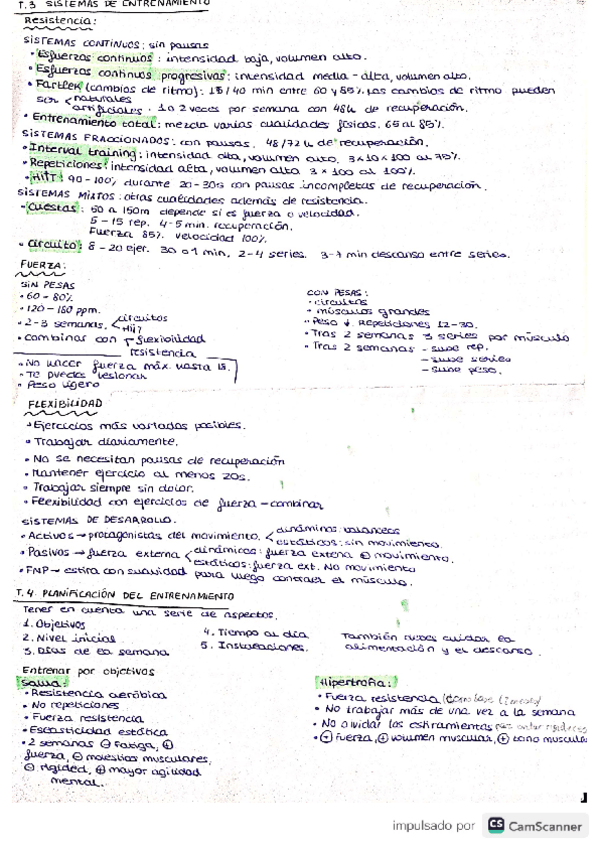 T.3 SISTEMAS DE ENTRENAMIENTO
Resistencia:
SISTEMAS CONTINUOS: sin pausas
• Esfuerzos continuos: intensidad baja, volumen alto.
• Esfuerzos continuos progresivos: intensidad media - alta, volumen alto.
• Fartlek (cambios de ritmo): 15/40 min entre 60 y 85%. Los cambios de ritmo pueden
ser naturales
artificiales. 1 o 2 veces por semana con 48h de recuperación.
• Entrenamiento total: mezcla varias cualidades físicas. 65 al 85%.
SISTEMAS FRACCIONADOS: con pausas. 48/72h de recuperación.
• Interval training: intensidad alta, volumen alto. 3x10x100 al 75%.
• Repeticiones: intensidad alta, volumen alta 3 x 100 al 100%.
• HIIT: 90-100% durante 20-30s con pausas incompletas de recuperación.
SISTEMAS MIXTOS: otras cualidades además de resistencia.
• Cuestas: 50 a 150m depende si es fuerza o velocidad.
5-15 rep. 4-5 min. recuperación.
Fuerza 85%. velocidad 100%.
• Circuito: 8-20 ejer. 30 o 1 min. 2-4 series. 3-7 min descanso entre series.
FUERZA:
SIN PESAS
• 60-80%
• 120-160 ppm.
• 2-3 semanas. circuitos
HIIT
• Combinar con flexibilidad
resistencia
• No hacer fuerza máx. hasta 18.
• Te puedes lesionar
• Peso ligero
CON PESAS:
• circuitos
• músculos grandes
• Peso ↓. Repeticiones 12-30.
• Tras 2 semanas 3 series por músculo
• Tras 2 semanas - sube rep.
- sube series
- sube peso.
FLEXIBILIDAD
• Ejercicios más variados posibles.
• Trabajar diariamente.
• No se necesitan pausas de recuperación
• Mantener ejercicio al menos 20s.
• Trabajar siempre sin dolor.
• Flexibilidad con ejercicios de fuerza - combinar
SISTEMAS DE DESARROLLO.
• Activos → protagonistas del movimiento. dinámicos: balanceos
estáticos: sin movimiento.
• Pasivos → fuerza externa dinámicos: fuerza externa ⊕ movimiento.
estáticos: fuerza ext. No movimiento
• FNP → estira con suavidad para luego contraer el músculo.
T.4 PLANIFICACIÓN DEL ENTRENAMIENTO
Tener en cuenta una serie de aspectos.
1. Objetivos
2. Nivel inicial
3. Días de la semana
4. Tiempo al día
5. Instalaciones.
También debes cuidar la
alimentación y el descanso.
Entrenar por objetivos
Salud:
• Resistencia aeróbica
• No repeticiones
• Fuerza resistencia
• Elasticidad estática
• 2 semanas ⊖ Fatiga, ⊕
fuerza, ⊖ molestias musculares,
⊖ rigidez, ⊕ mayor agilidad
mental.
Hipertrofia:
• Fuerza resistencia
• No trabajar más de una vez a la semana
• No olvidar los estiramientos
• ⊕ Fuerza, ⊕ volumen muscular, ⊕ tono muscular
impulsado por CS CamScanner